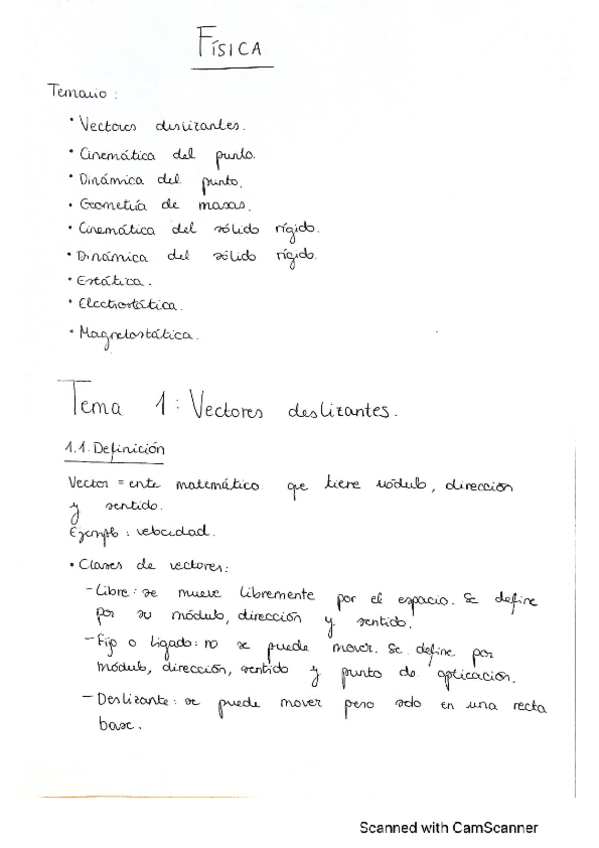 FÍSICA
Temario:
• Vectores deslizantes.
• Cinemática del punto.
• Dinámica del punto.
• Geometría de masas.
• Cinemática del sólido rígido.
• Dinámica del sólido rígido.
• Estática.
• Electrostática.
• Magnetostática.
Tema 1: Vectores deslizantes.
1.1. Definición
Vector = ente matemático que tiene módulo, dirección
y sentido.
Ejemplo: velocidad.
• Clases de vectores:
- Libre: se mueve libremente por el espacio. Se define
por su módulo, dirección y sentido.
- Fijo o ligado: no se puede mover. Se define por
módulo, dirección, sentido y punto de aplicación.
- Deslizante: se puede mover pero solo en una recta
base.
Scanned with CamScanner